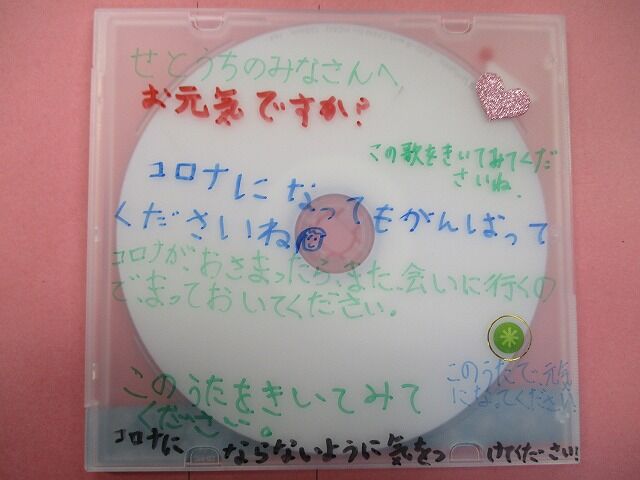 せとうちのみなさんへ
お元気ですか?
この歌をきいてみてくだ
さいね.
コロナになってもがんばって
くださいね
コロナが、おさまったら、また、会いに行くの
で、まっておいてください。
このうたで、元気
になってください
このうたをきいてみて
ください。
コロナにならないように気をつけてください!